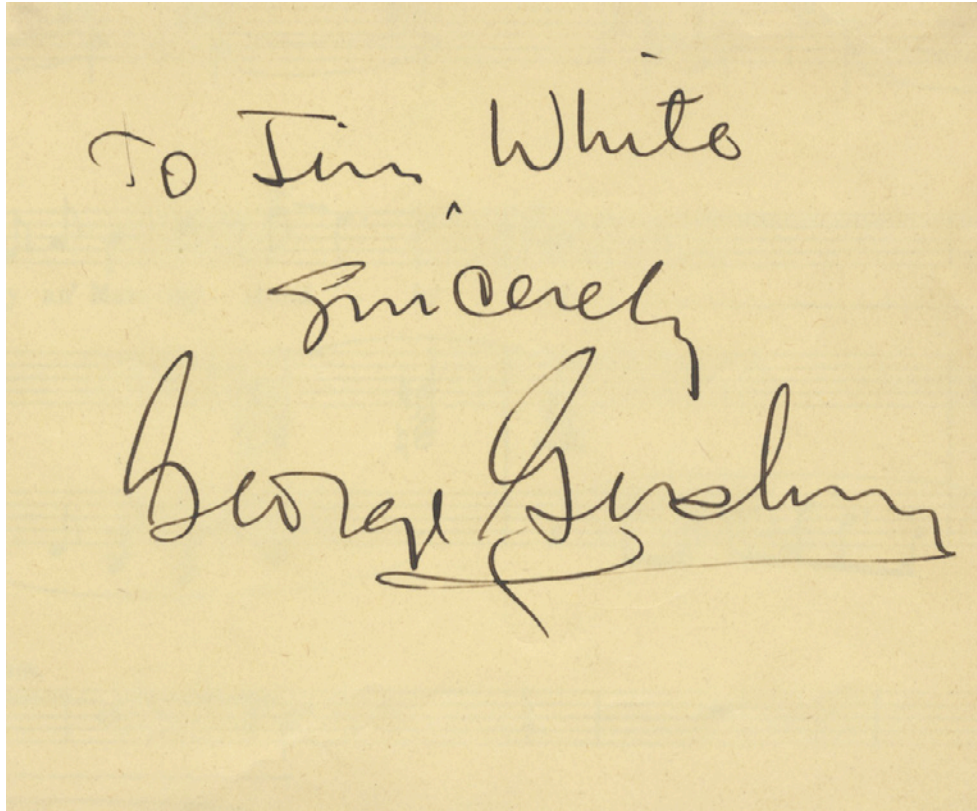 To Jim White
Sincerely
George Gershwin